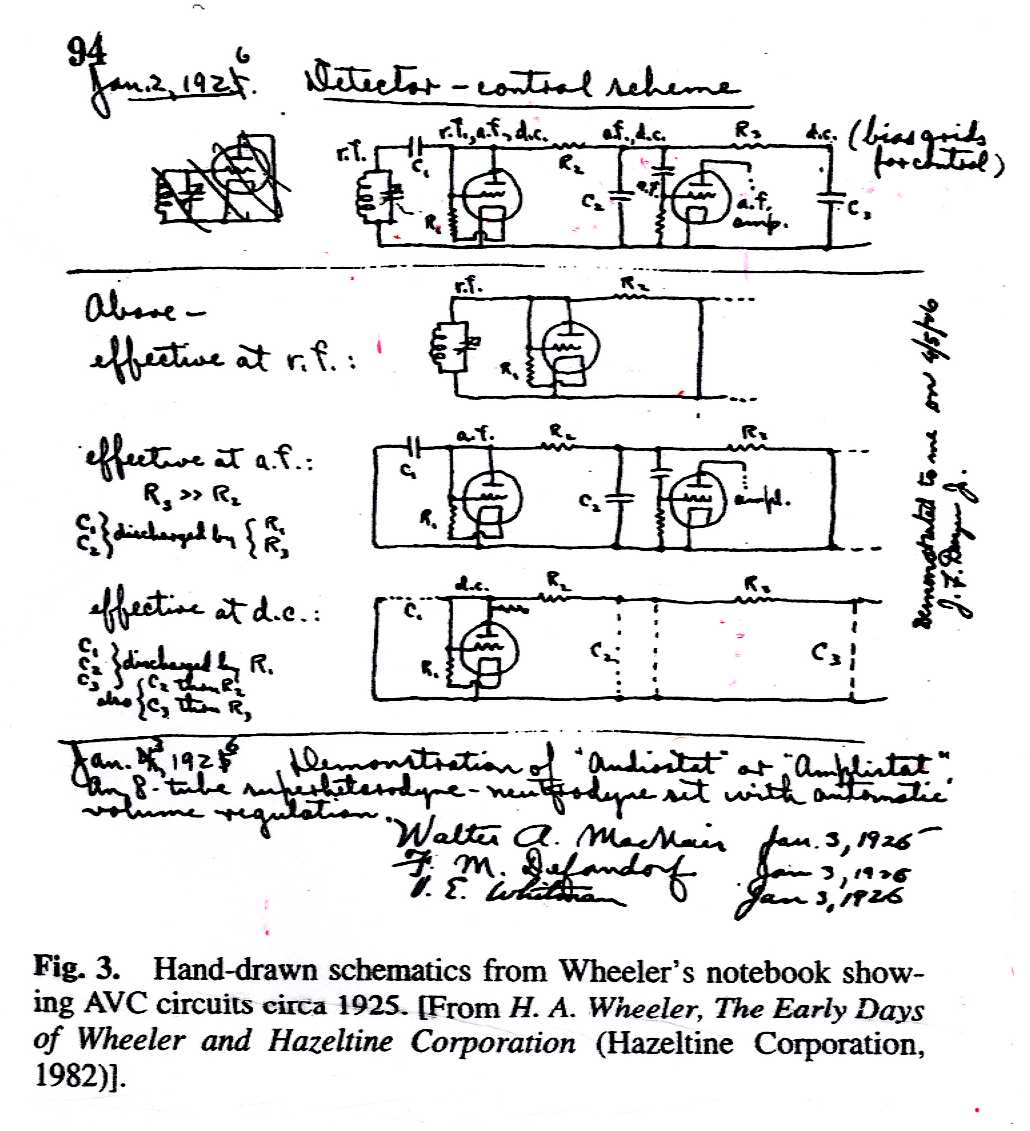 94
Jan. 2, 1925. 6
Detector – control scheme
r.f. C₁ r.f., a.f., d.c. R₂ a.f., d.c. R₃ d.c. (bias grids
for control)
R₁ C₂ a.f. a.f.
amp. C₃
Above –
effective at r.f.:
r.f. R₂
R₁
effective at a.f.:
R₃ >> R₂
C₁ } discharged by { R₁
C₂ } { R₃
C₁ a.f. R₂ R₃
R₁ C₂ ampl.
effective at d.c.:
C₁
C₂ } discharged by R₁
C₃
also { C₂ thru R₂
{ C₃ thru R₃
C₁ d.c. R₂ R₃
R₁ C₂ C₃
Demonstrated to me on 4/5/26
J. F.
Jan. 3, 1925 6 Demonstration of "Audiostat" or "Amplistat".
An 8-tube superheterodyne-neutrodyne set with automatic
volume regulation.
Walter A. MacNair Jan. 3, 1926
F. M. Defandorf Jan 3, 1926
V. E. Whitman Jan 3, 1926
Fig. 3. Hand-drawn schematics from Wheeler's notebook show-
ing AVC circuits circa 1925. [From H. A. Wheeler, The Early Days
of Wheeler and Hazeltine Corporation (Hazeltine Corporation,
1982)].